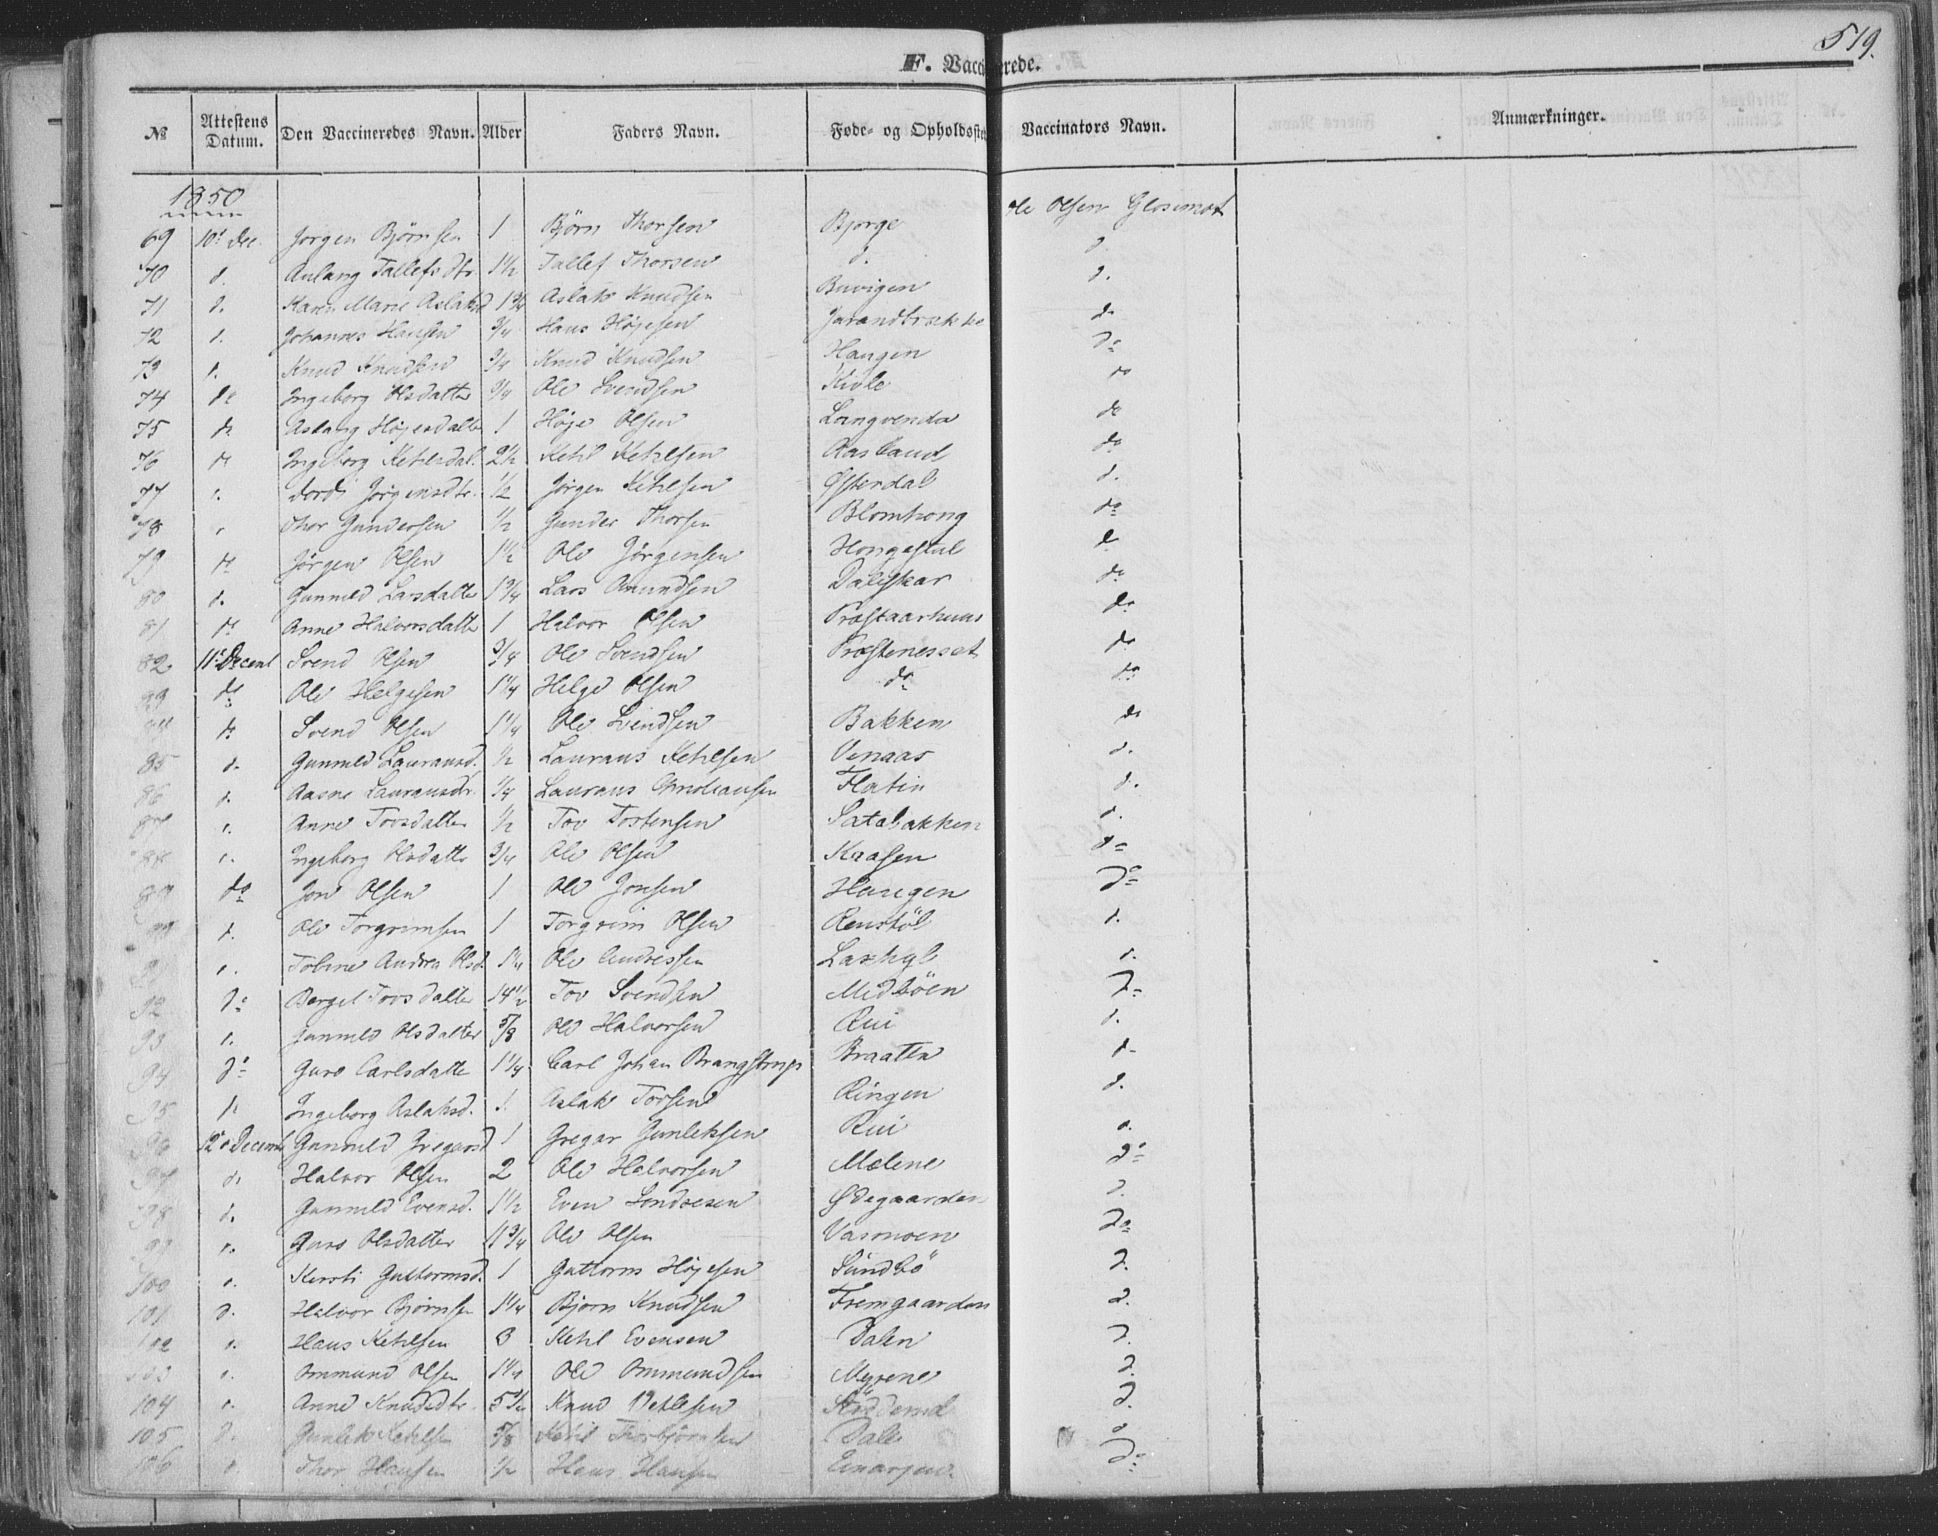 519.
F. Vaccinerede.
№ Attestens Datum. Den Vaccineredes Navn. Alder Faders Navn. Føde- og Opholdsste Vaccinators Navn. Anmærkninger.
1850
69 10d Dec. Jørgen Bjørnsen 1 Bjørn Thorsen Bjorge Ole Olsen Glosimot
70 d. Aslaug Tallefsdtr 1½ Tallef Thorsen d. d.
71 d. Karen Marie Aslaksd 1¾ Aslak Knudsen Buvigen d.
72 d. Johannes Hansen ¾ Hans Højesen Jurandbrække do
73 d. Knud Knudsen ¾ Knud Knudsen Haugen do
74 do Ingeborg Olsdatter ¾ Ole Svendsen Kivle do
75 do Aslaug Højesdatter 1 Høje Olsen Langvenda do
76 do Ingeborg Ketilsdat. 2½ Ketil Ketilsen Aasland do
77 d. Dordi Jørgensdtr. ½ Jørgen Ketilsen Østerdal d.
78 d. Thor Gundersen ½ Gunder Thorsen Blomhoug do
79 do Jørgen Olsen 1½ Ole Jørgensen Hougestul d.
80 d. Gunnild Larsdatter 1¾ Lars Amundsen Daleskar do
81 do Anne Halvorsdatter 1 Halvor Olsen Præstaarhuus do
82 11d Decemb Svend Olsen ¾ Ole Svendsen Præstenesset do
83 do Ole Helgesen 1¼ Helge Olsen do do
84 do Svend Olsen 1¼ Ole Svendsen Bakken do
85 d. Gunnild Lauransd. ½ Laurans Ketilsen Venaas d.
86 d. Aasne Lauransdr. ¼ Laurans Christiansen Flatin d.
87 d. Anne Tovsdatter ½ Tov Tostensen Satabakken d.
88 d. Ingeborg Olsdatter ¾ Ole Olsen Kaasen do
89 do Jon Olsen 1 Ole Jonsen Haugen do
90 d. Ole Torgrimsen 1 Torgrim Olsen Renstöl d.
91 d. Tobine Andrea Olsd. 1¼ Ole Andressen Laxhyl d.
92 do Bergit Tovsdatter 14½ Tov Svendsen Midböen do
93 d. Gunnild Olsdatter 5/8 Ole Halvorsen Rui d.
94 do Guro Carlsdatter 1¼ Carl Johan Brangstrup Braatten d.
95 do Ingeborg Aslaksd. 1 Aslak Torsen Ringen d.
96 12d Decemb Gunnild Gregarsd 1 Gregar Gunleksen Rui d.
97 d. Halvor Olsen 2 Ole Halvorsen Mælene do
98 d. Gunnild Evensd. 1½ Even Sondresen Ødegaarden d.
99 d. Guro Olsdatter 11¾ Ole Olsen Vasmoen do
100 d. Kersti Guttormsd. 1 Guttorm Højesen Sundbö d.
101 d. Halvor Bjørnsen 1¼ Bjørn Knudsen Fremgaarden d.
102 d. Hans Ketilsen 3 Ketil Evensen Dalen d.
103 d. Ommund Olsen 1¼ Ole Ommundsen Myrene d.
104 d. Anne Knudsdtr. 5½ Knud Vetlesen d.
105 d. Gunlek Ketilsen 5/8 Ketil Thorbjörnsen Dale d.
106 d. Thor Hansen ½ Hans Hansen do